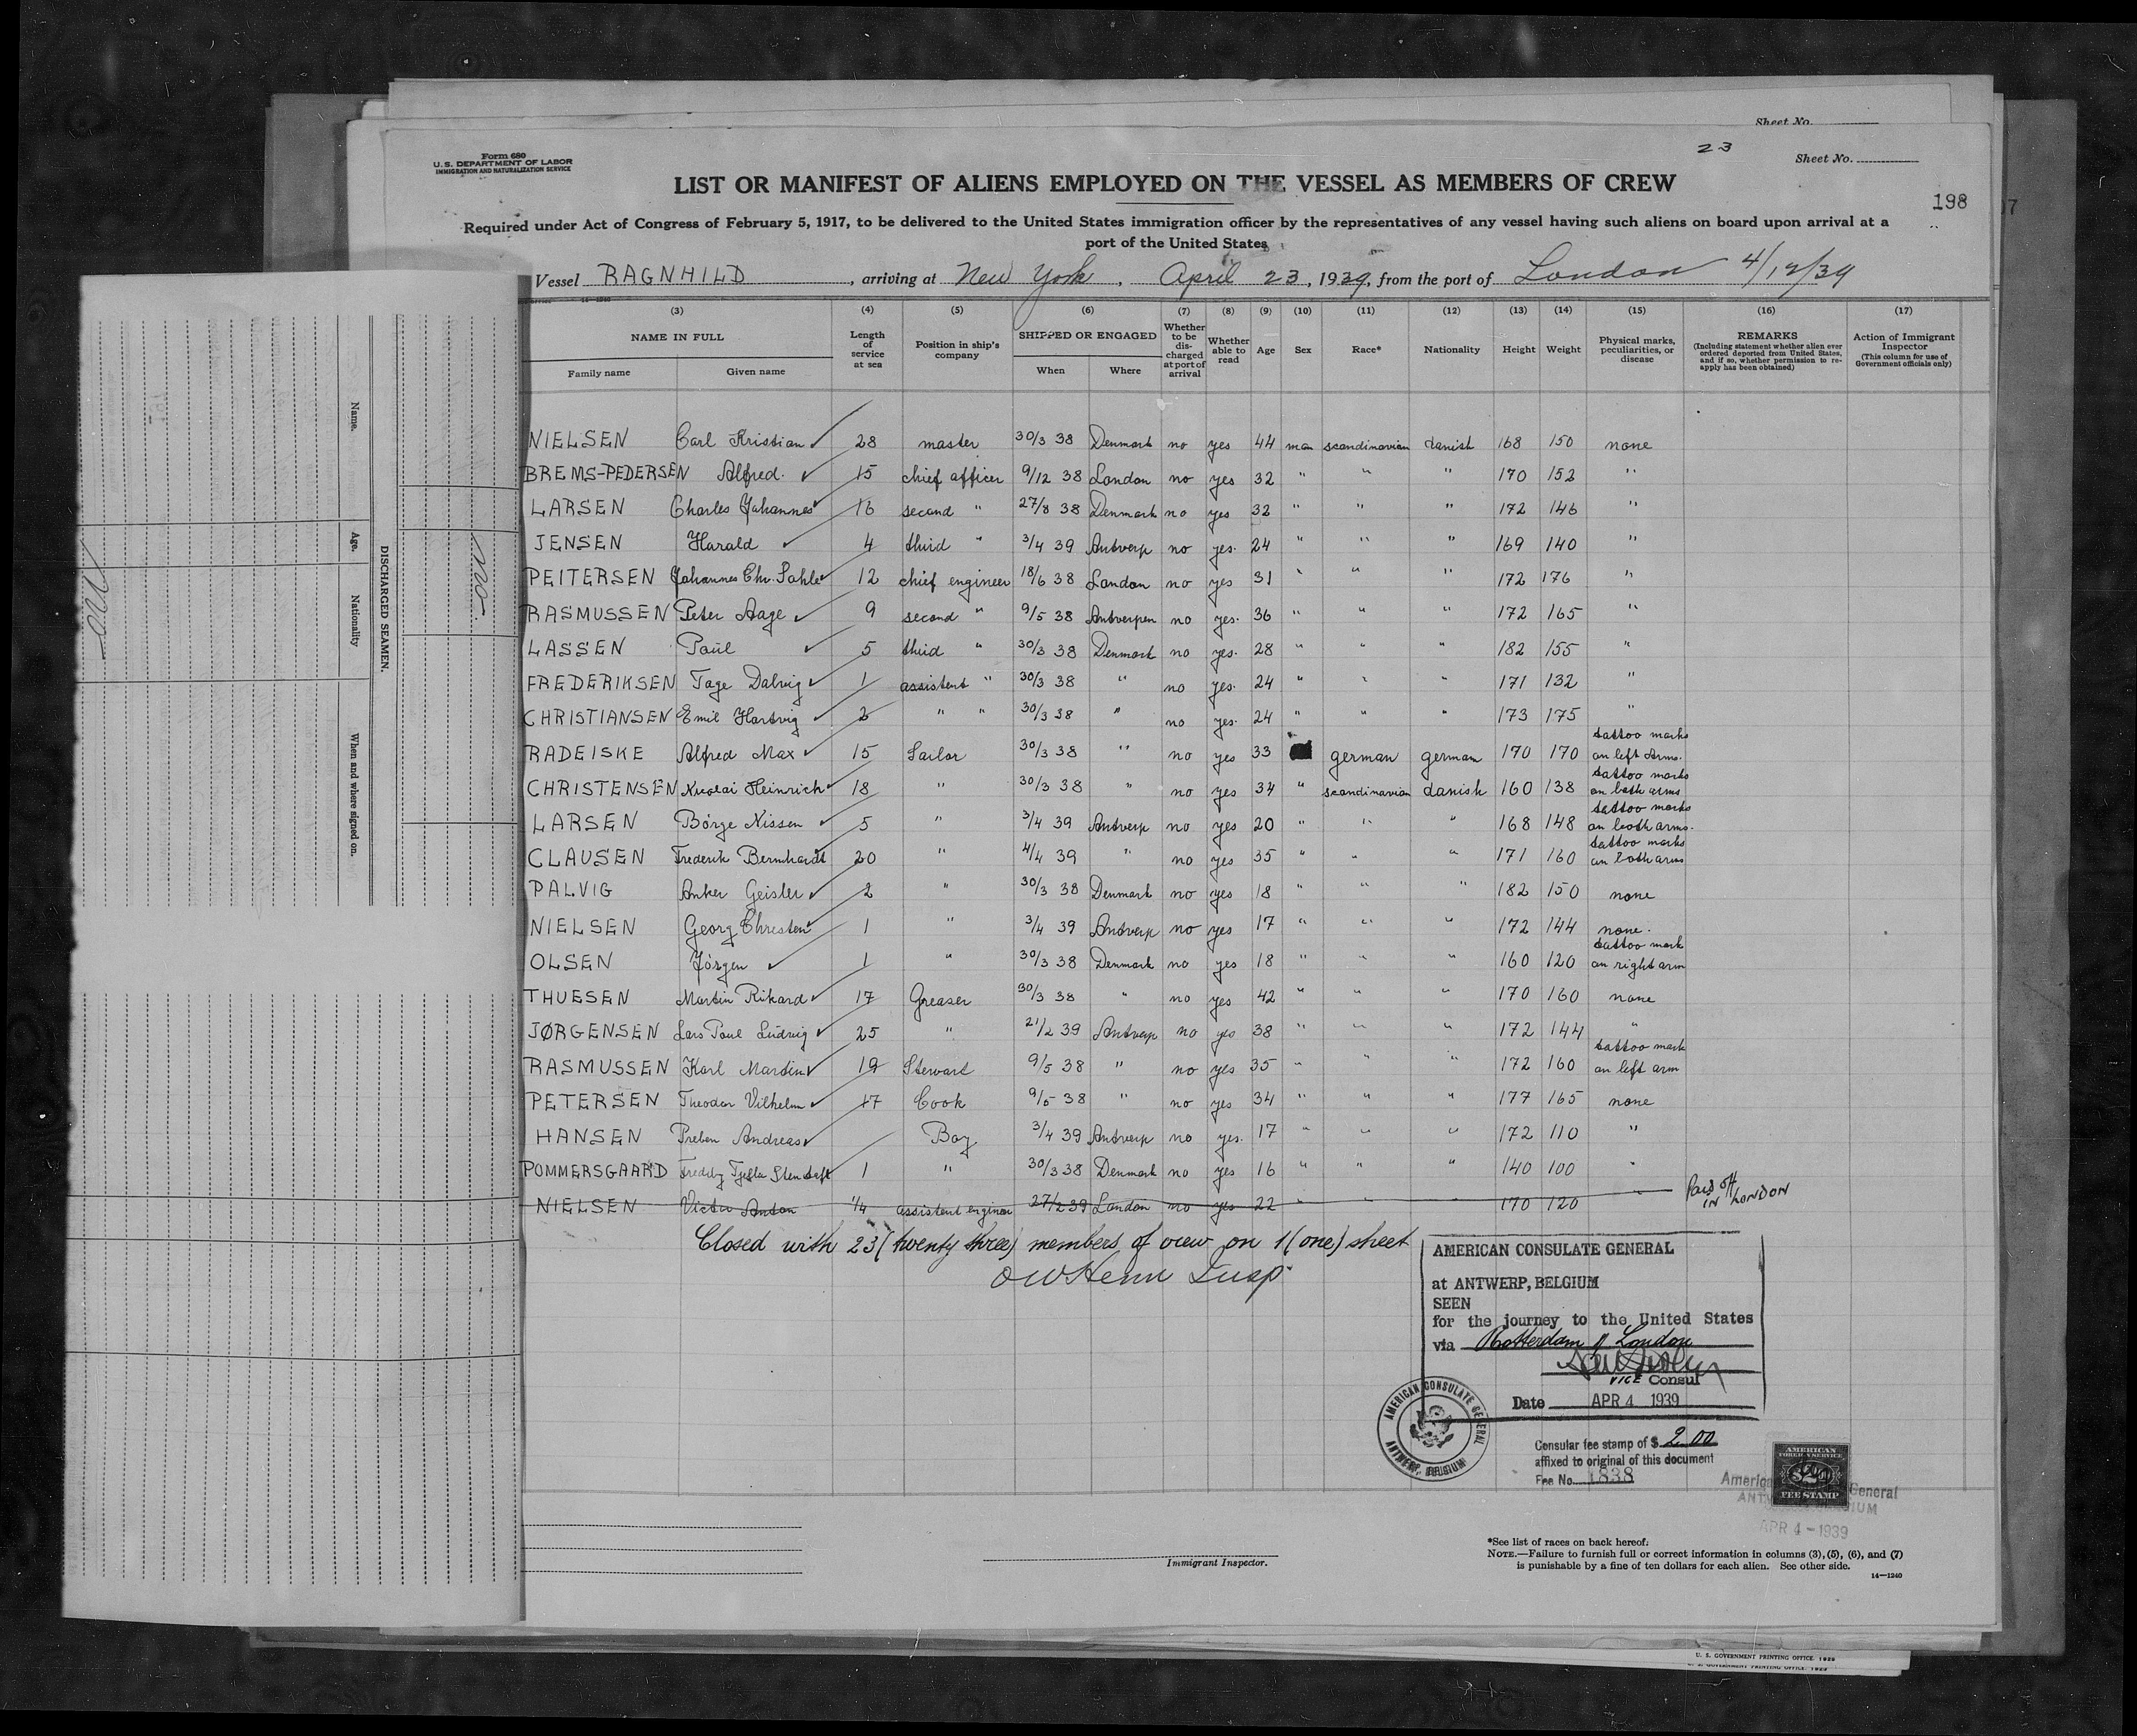 Sheet No.
23
Form 680
U. S. DEPARTMENT OF LABOR
IMMIGRATION AND NATURALIZATION SERVICE
Sheet No.
LIST OR MANIFEST OF ALIENS EMPLOYED ON THE VESSEL AS MEMBERS OF CREW
198
Required under Act of Congress of February 5, 1917, to be delivered to the United States immigration officer by the representatives of any vessel having such aliens on board upon arrival at a
port of the United States
Vessel RAGNHILD, arriving at New York, April 23, 1939, from the port of London 4/12/39
(3) (4) (5) (6) (7) (8) (9) (10) (11) (12) (13) (14) (15) (16) (17)
NAME IN FULL
Family name Given name
Length of service at sea
Position in ship's company
SHIPPED OR ENGAGED
When Where
Whether to be discharged at port of arrival
Whether able to read
Age
Sex
Race*
Nationality
Height
Weight
Physical marks, peculiarities, or disease
REMARKS
(Including statement whether alien ever ordered deported from United States, and if so, whether permission to reapply has been obtained)
Action of Immigrant Inspector
(This column for use of Government officials only)
NIELSEN Carl Kristian 28 master 30/3 38 Denmark no yes 44 man scandinavian danish 168 150 none
BREMS-PEDERSEN Alfred. 15 chief officer 9/12 38 London no yes 32 " " " 170 152 "
LARSEN Charles Johannes 16 second " 27/8 38 Denmark no yes 32 " " " 172 146 "
JENSEN Harald 4 third " 3/4 39 Antverp no yes. 24 " " " 169 140 "
PEITERSEN Johannes Chr. 12 chief engineer 18/6 38 London no yes 31 " " " 172 176 "
RASMUSSEN Peter Aage 9 second " 9/5 38 Antverpen no yes. 36 " " " 172 165 "
LASSEN Paul 5 third " 30/3 38 Denmark no yes. 28 " " " 182 155 "
FREDERIKSEN Tage Dalvig 1 assistent " 30/3 38 " no yes. 24 " " " 171 132 "
CHRISTIANSEN Emil Hartvig 2 " " 30/3 38 " no yes. 24 " " " 173 175 "
RADEISKE Alfred Max 15 Sailor 30/3 38 " no yes 33 german german 170 170 tattoo marks on left Arms.
CHRISTENSEN Nicolai Heinrich 18 " 30/3 38 " no yes 34 " scandinavian danish 160 138 tattoo marks on both arms
LARSEN Börge Nissen 5 " 3/4 39 Antverp no yes 20 " " " 168 148 tattoo marks on both arms.
CLAUSEN Frederik Bernhardt 20 " 4/4 39 " no yes 35 " " " 171 160 tattoo marks on both arms
PALVIG Anker Geisler 2 " 30/3 38 Denmark no yes 18 " " " 182 150 none
NIELSEN Georg Christen 1 " 3/4 39 Antverp no yes 17 " " " 172 144 none.
OLSEN Jörgen 1 " 30/3 38 Denmark no yes 18 " " " 160 120 tattoo mark on right arm
THUESEN Martin Rikard 17 Greaser 30/3 38 " no yes 42 " " " 170 160 none
JØRGENSEN Lars Poul Ludvig 25 " 21/2 39 Antverp no yes 38 " " " 172 144 "
RASMUSSEN Karl Martin 19 Stewart 9/5 38 " no yes 35 " " " 172 160 tattoo mark on left arm
PETERSEN Theodor Vilhelm 17 Cook 9/5 38 " no yes 34 " " " 177 165 none
HANSEN Preben Andreas Boy 3/4 39 Antverp no yes. 17 " " " 172 110 "
POMMERSGAARD Freddy 1 " 30/3 38 Denmark no yes 16 " " " 140 100 "
NIELSEN Victor Anton 1/4 assistent engineer 27/2 39 London no yes 22 " " " 170 120 " Paid off IN LONDON
Closed with 23 (twenty three) members of crew on 1 (one) sheet
AMERICAN CONSULATE GENERAL
at ANTWERP, BELGIUM
SEEN
for the journey to the United States
via Rotterdam & London
VICE Consul
Date APR 4 1939
AMERICAN CONSULATE GENERAL
ANTWERP, BELGIUM
Consular fee stamp of $ 2.00
affixed to original of this document
Fee No. 1838
AMERICAN
FOREIGN SERVICE
$2
FEE STAMP
American General
APR 4 - 1939
Immigrant Inspector.
*See list of races on back hereof.
NOTE.—Failure to furnish full or correct information in columns (3), (5), (6), and (7)
is punishable by a fine of ten dollars for each alien. See other side.
14—1240
U. S. GOVERNMENT PRINTING OFFICE
DISCHARGED SEAMEN.
Name.
Age.
Nationality
When and where signed on.